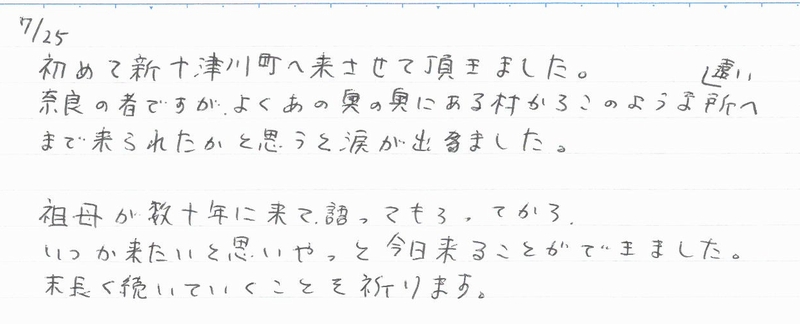 7/25
初めて新十津川町へ来させて頂きました。
奈良の者ですが、よくあの奥の奥にある村からこのような遠い所へ
まで来られたかと思うと涙が出ました。
祖母が数十年に来て、語ってもらってから、
いつか来たいと思いやっと今日来ることができました。
末長く続いていくことを祈ります。